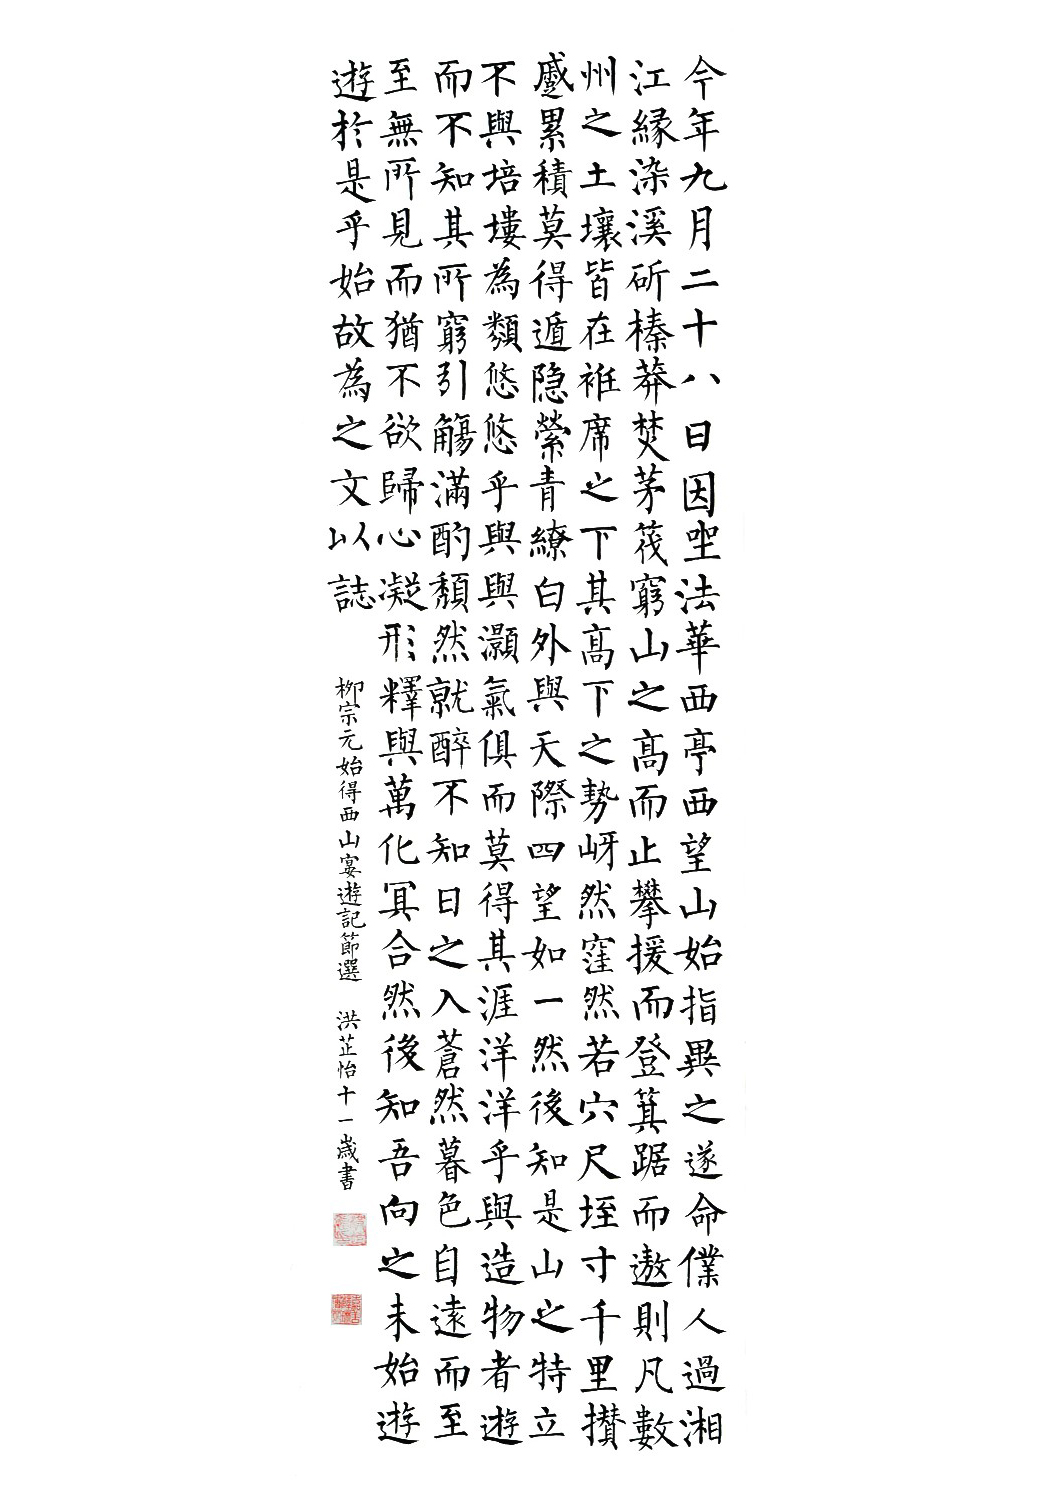 今年九月二十八日因坐法華西亭西望山始指異之遂命僕人過湘
江縁染溪斫榛莽焚茅筏窮山之髙而止攀援而登箕踞而遨則凡數
州之土壤皆在袵席之下其髙下之勢岈然窪然若穴尺垤寸千里攢
蹙累積莫得遁隐縈青繚白外與天際四望如一然後知是山之特立
不與培塿為類悠悠乎與與灝氣俱而莫得其涯洋洋乎與造物者遊
而不知其所窮引觴滿酌頽然就醉不知日之入蒼然暮色自遠而至
至無所見而猶不欲歸心凝形釋與萬化冥合然後知吾向之未始遊
遊於是乎始故為之文以誌
柳宗元始得西山宴遊記節選 洪芷怡十一歳書